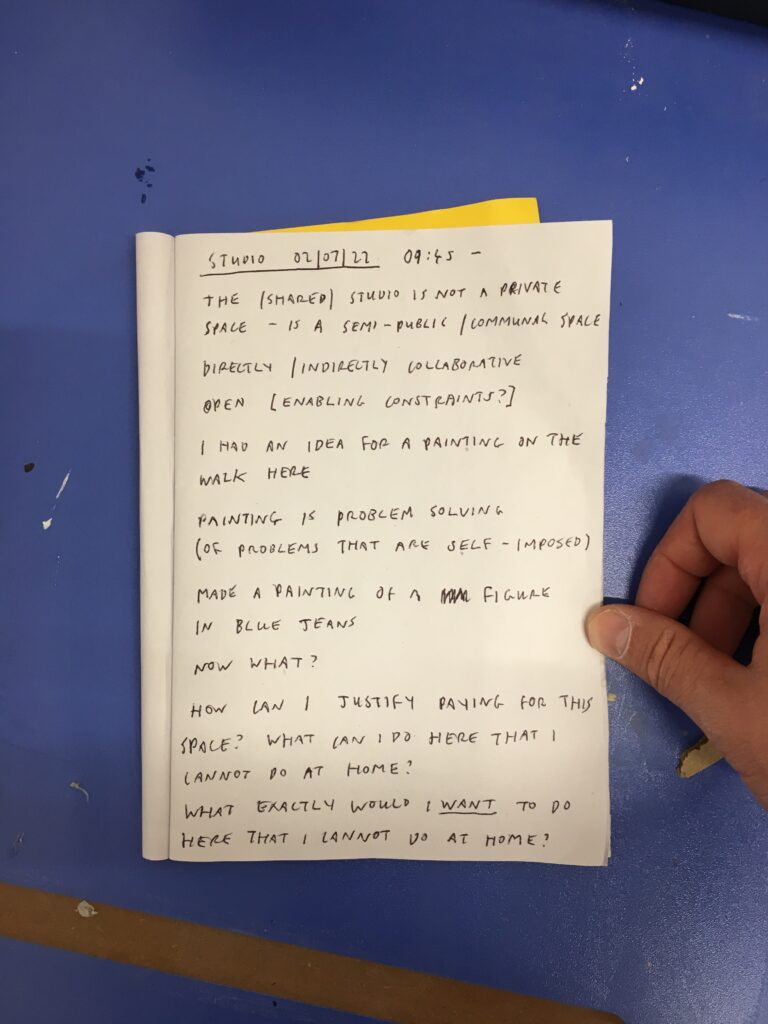 STUDIO 02/07/22 09:45 -
THE (SHARED) STUDIO IS NOT A PRIVATE
SPACE - IS A SEMI-PUBLIC / COMMUNAL SPACE
DIRECTLY / INDIRECTLY COLLABORATIVE
OPEN [ENABLING CONSTRAINTS?]
I HAD AN IDEA FOR A PAINTING ON THE
WALK HERE
PAINTING IS PROBLEM SOLVING
(OF PROBLEMS THAT ARE SELF-IMPOSED)
MADE A PAINTING OF A FIGURE
IN BLUE JEANS
NOW WHAT?
HOW CAN I JUSTIFY PAYING FOR THIS
SPACE? WHAT CAN I DO HERE THAT I
CANNOT DO AT HOME?
WHAT EXACTLY WOULD I WANT TO DO
HERE THAT I CANNOT DO AT HOME?